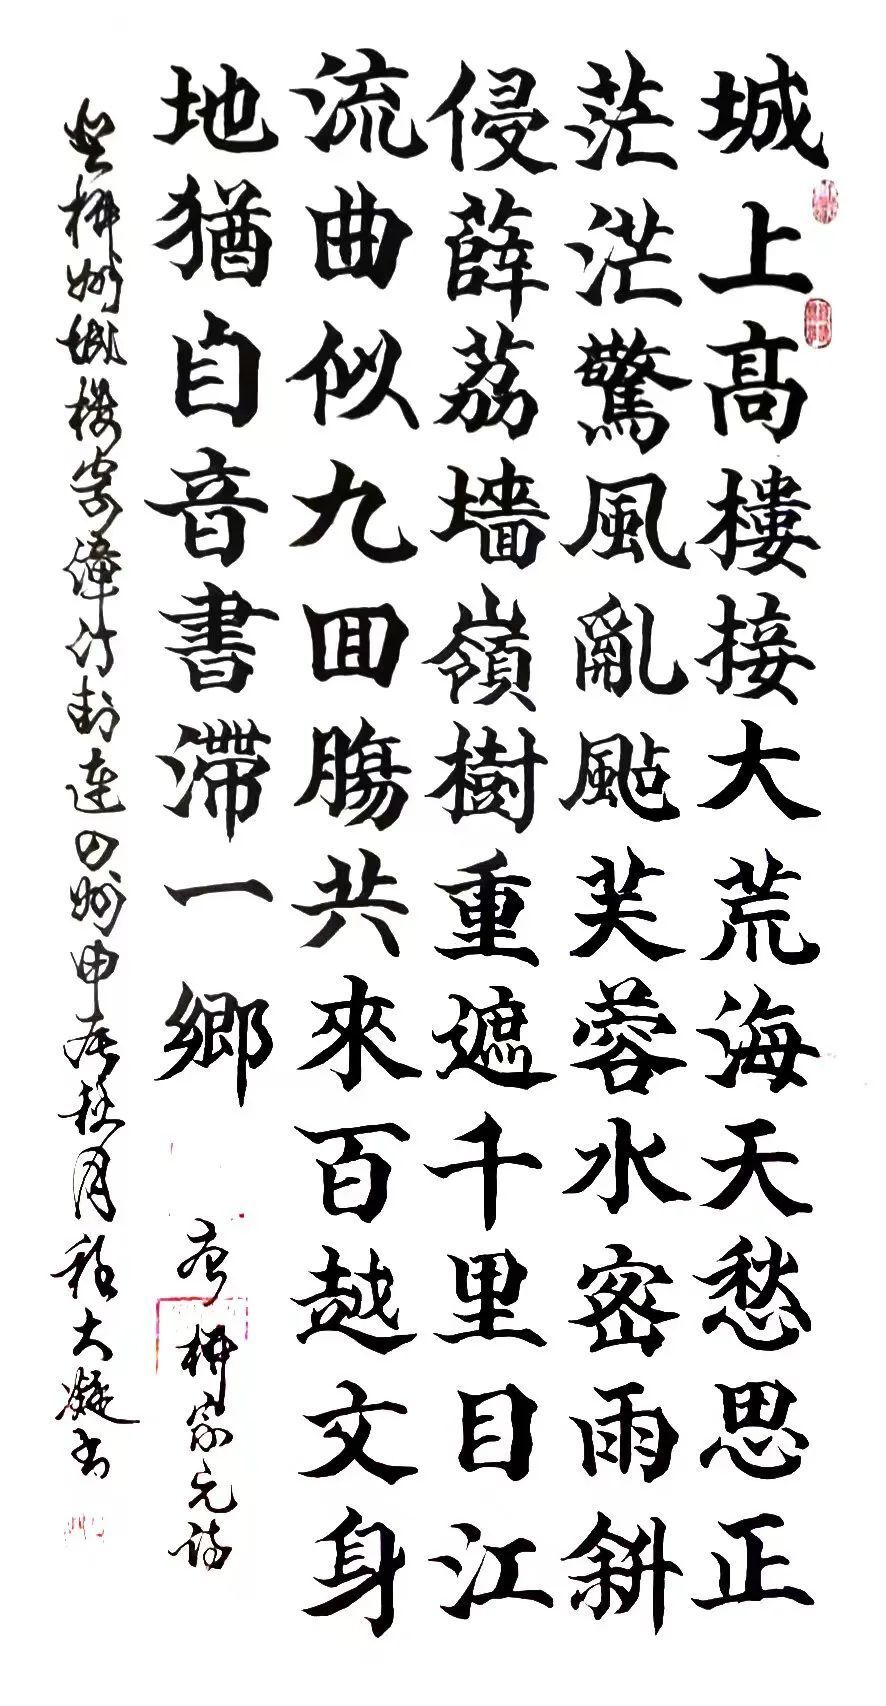 城上高樓接大荒海天愁思正
茫茫驚風亂颭芙蓉水密雨斜
侵薜荔墙嶺樹重遮千里目江
流曲似九回腸共來百越文身
地猶自音書滯一鄉 唐柳宗元詩
登柳州城樓寄漳汀封連四州甲辰秋月程大凝书